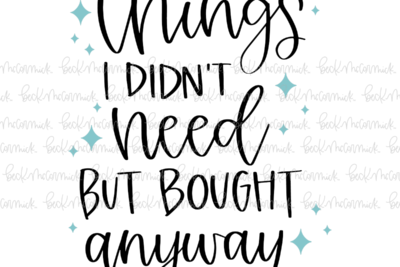 things
I DIDN'T
need
BUT BOUGHT
anyway